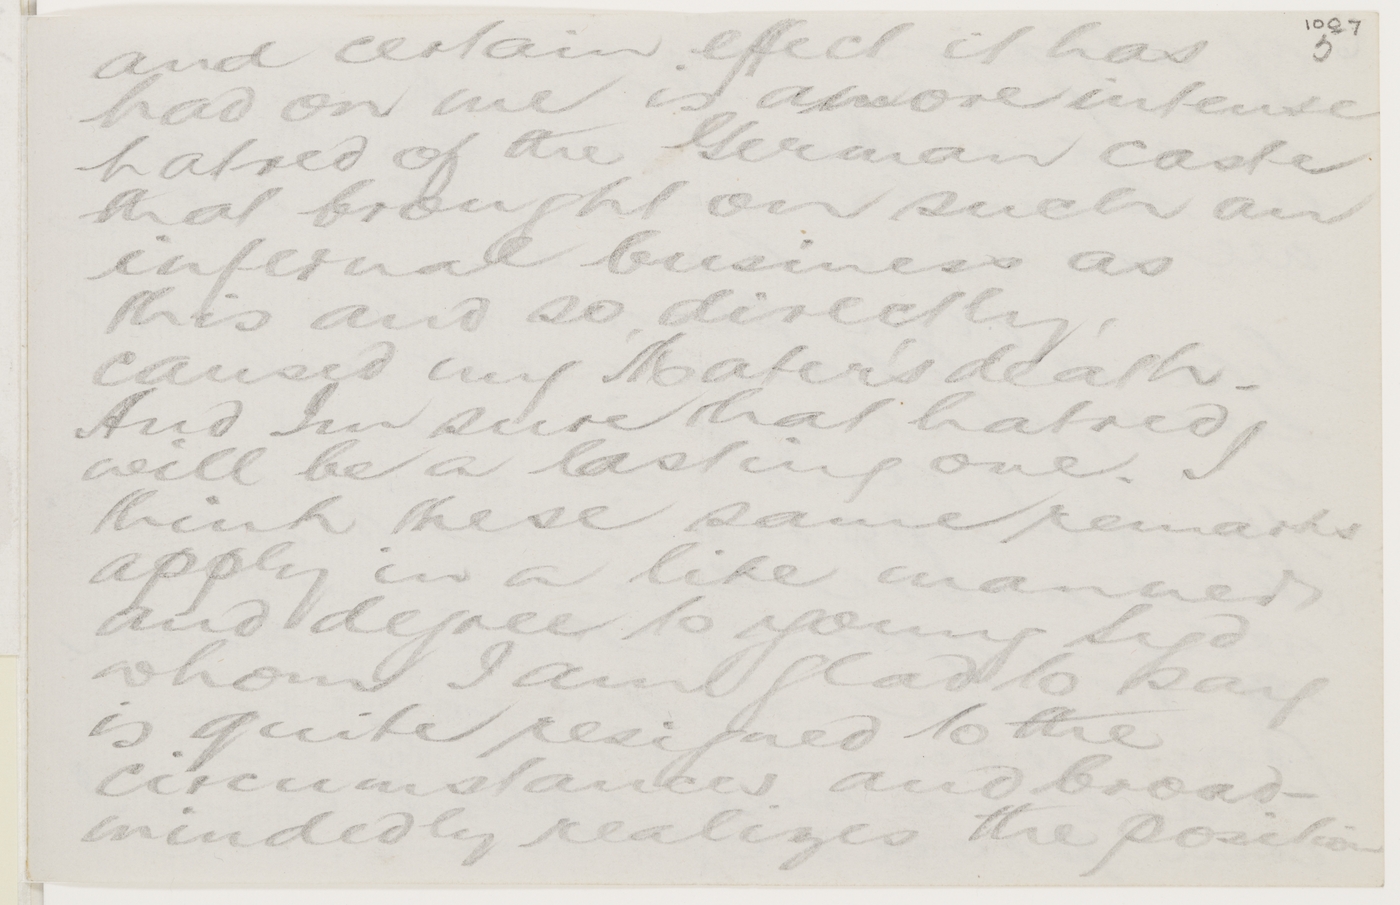 1097
5
and certain effect it has
had on me is a more intense
hatred of the German caste
that brought on such an
infernal business as
this and so, directly,
caused my Mater's death -
And Im sure that hatred,
will be a lasting one. I
think these same remarks
apply in a like manner
and degree to young Syd
whom I am glad to say
is quite resigned to the
circumstances and broad-
mindedly realizes the position